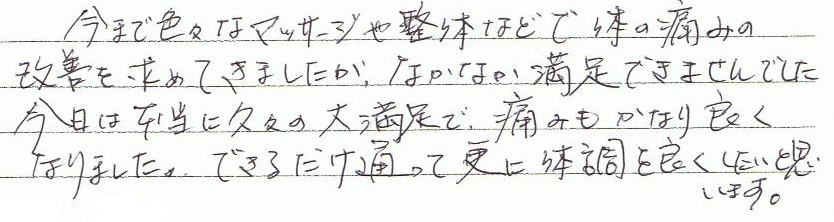 今まで色々なマッサージや整体などで体の痛みの
改善を求めてきましたが、なかなか満足できませんでした
今日は本当に久々の大満足で、痛みもかなり良く
なりました。できるだけ通って更に体調を良くしたいと思
います。